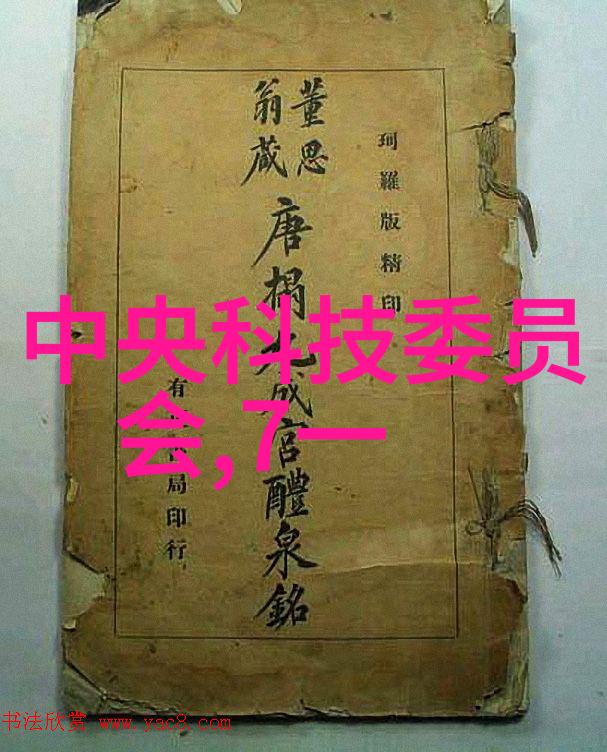 珂羅版精印
董思
翁藏
唐榻九成宫醴泉銘
有局印行
中央科技委员
会,7一
书法欣赏 www.yac8.com